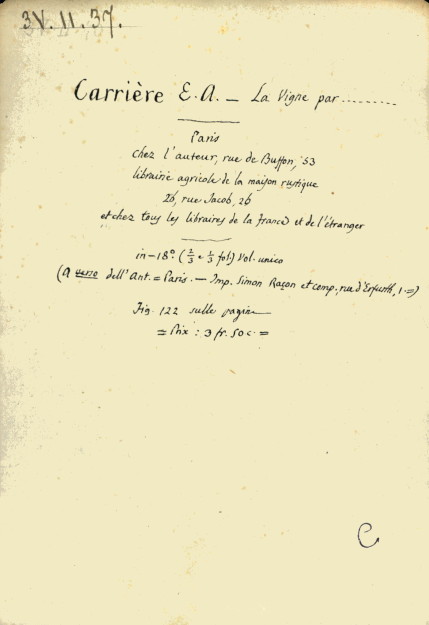 3V.II.37.
Carrière E.A. — La Vigne par .........
Paris
chez l'auteur, rue de Buffon, 53
librairie agricole de la maison rustique
26, rue Jacob, 26
et chez tous les libraires de la France et de l'étranger
in-18°. (2/3 e 1/3 fol) Vol. unico
(a verso dell'Ant. = Paris. — Imp. Simon Raçon et comp., rue d'Erfurth, 1. =)
Fig. 122 sulle pagine
= Prix : 3 fr. 50 c. =
C